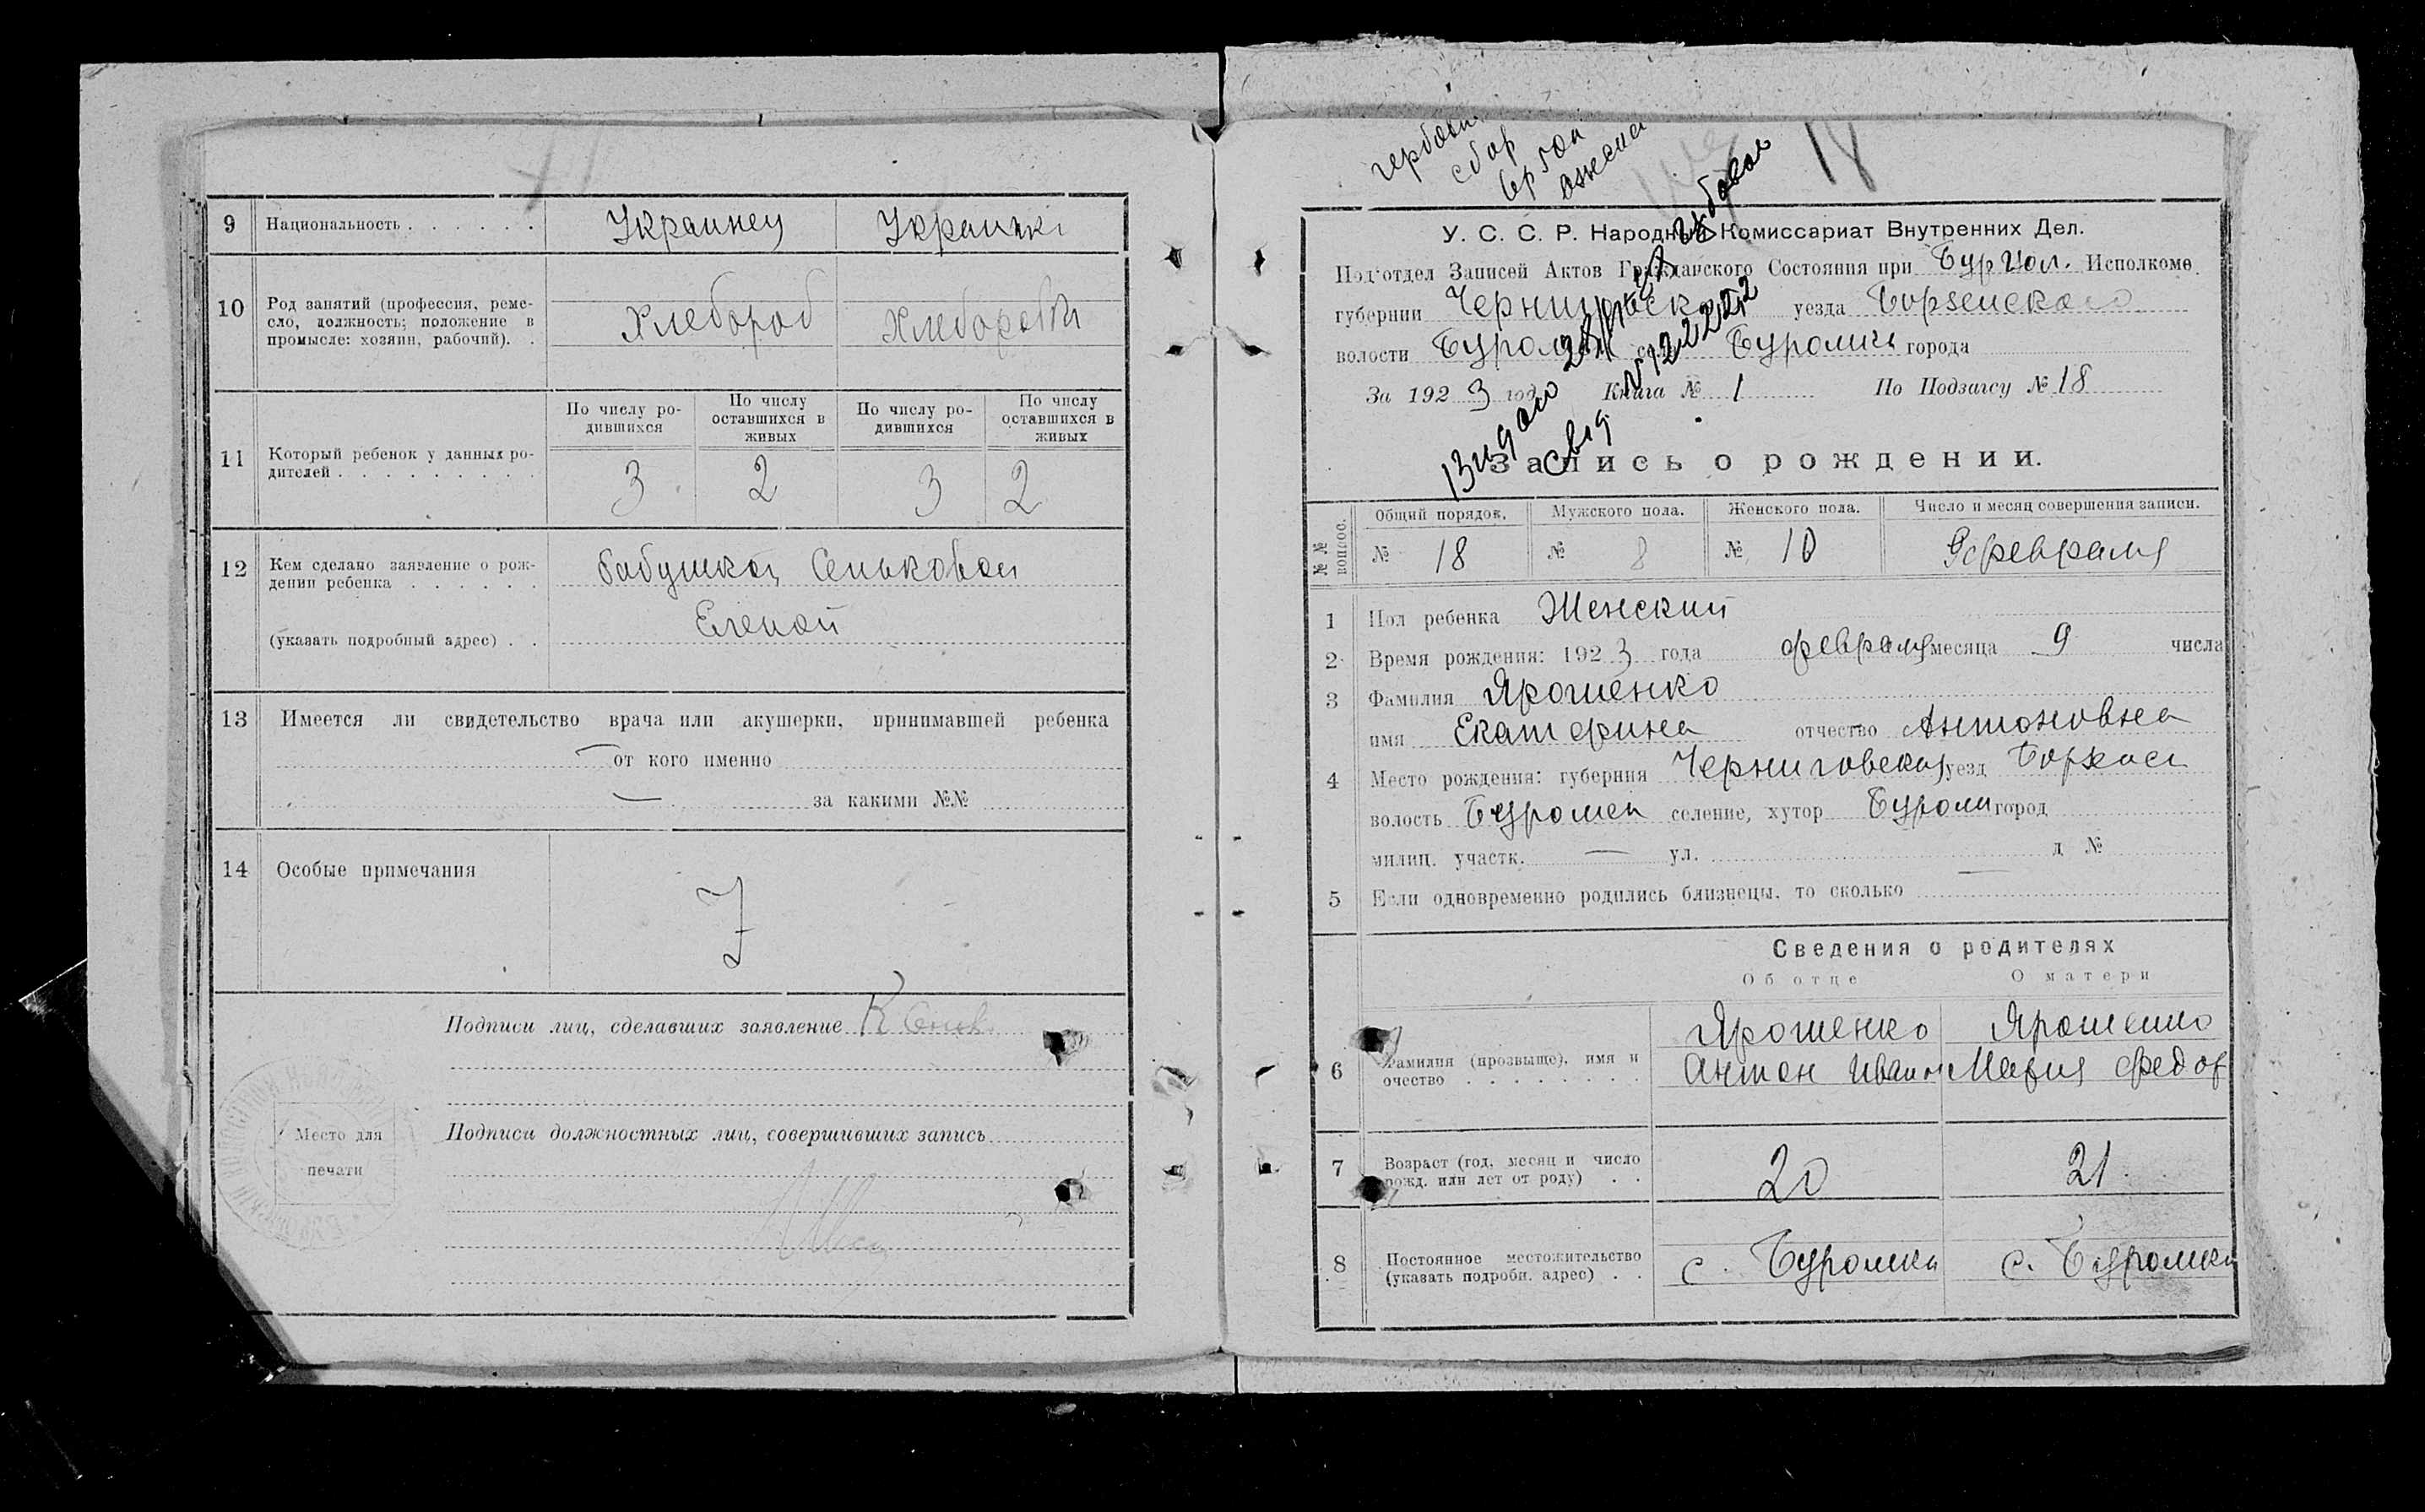 9 Национальность . . . . . . Украинец Украинкі
10 Род занятий (профессия, реме-
сло, должность; положение в
промысле: хозяин, рабочий). . Хлебороб Хлеборобк
По числу ро-
дившихся По числу
оставшихся в
живых По числу ро-
дившихся По числу
оставшихся в
живых
11 Который ребенок у данных ро-
дителей . . . . . . . . . 3 2 3 2
12 Кем сделано заявление о рож-
дении ребенка . . . . . . бабушкой Сеньковой
Еленой
(указать подробный адрес) . .
13 Имеется ли свидетельство врача или акушерки, принимавшей ребенка
от кого именно
— за какими №№
14 Особые примечания
Подписи лиц, сделавших заявление
Подписи должностных лиц, совершивших запись
Место для
печати
гербовы
сбор
18
У. С. С. Р. Народный Комиссариат Внутренних Дел.
Под'отдел Записей Актов Гражданского Состояния при Бурвол. Исполкоме
губернии Черниговской уезда Борзенского
волости Буромск с. Буромки города
За 1923 год Книга № 1 По Подзагсу № 18
Запись о рождении.
№№ вопрос. Общий порядок. Мужского пола. Женского пола. Число и месяц совершения записи.
№ 18 № 8 № 10 9 февраля
1 Пол ребенка Женский
2 Время рождения: 1923 года февраля месяца 9 числа
3 Фамилия Ярошенко
имя Екатерина отчество Антоновна
4 Место рождения: губерния Черниговская уезд
волость Буромск селение, хутор Буромк город
милиц. участк. — ул. — д №
5 Если одновременно родились близнецы, то сколько
Сведения о родителях
Об отце О матери
Ярошенко Ярошенко
6 Фамилия (прозвище), имя и
очество . . . . . . . . Антон Иванов Мария Федор
7 Возраст (год, месяц и число
рожд. или лет от роду) . . 20 21
8 Постоянное местожительство
(указать подробн. адрес) . . с. Буромка с. Буромка